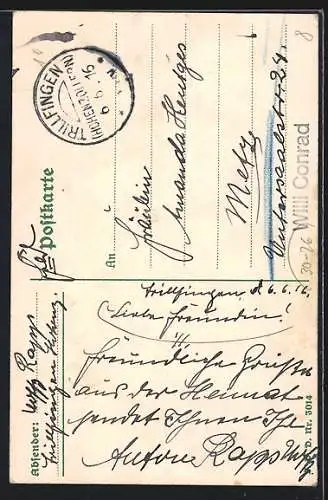 TRILLFINGEN
(HOHENZOLLERN)
6 6 16
Postkarte
An
Fräulein
Amanda Hentges
Metz
24
Willi Conrad
30-26
8
Absender:
Rapp
Trillfingen
Trillfingen, d. 6.6.16.
Liebe Freundin!
Freundliche Grüße
aus der Heimat
sendet Ihnen Ihr
Anton Rapp
D. Nr. 3014